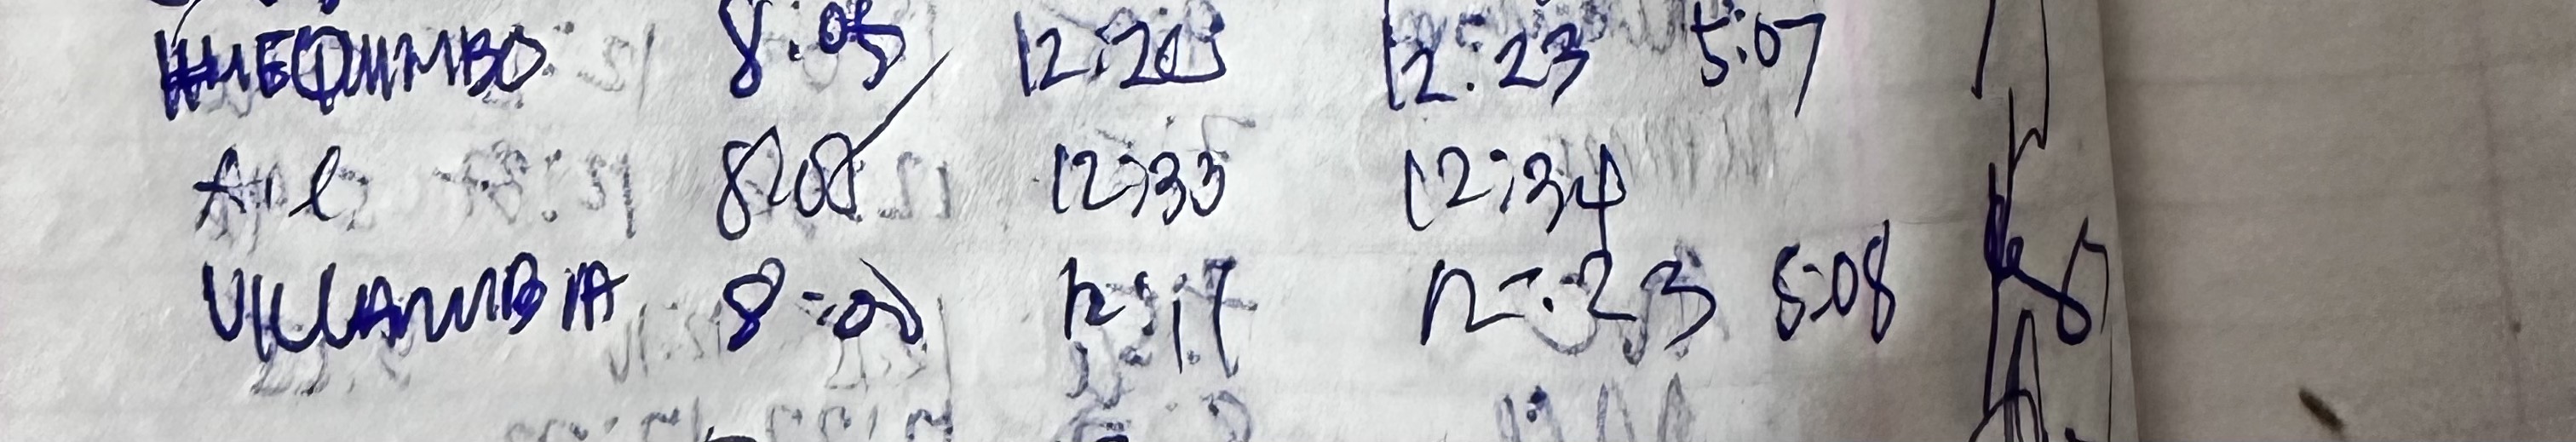 8:05 12:20 12:23 5:07
Ail 8:08 12:33 12:34
VILLAMBIA 8:00 12:17 12:23 5:08